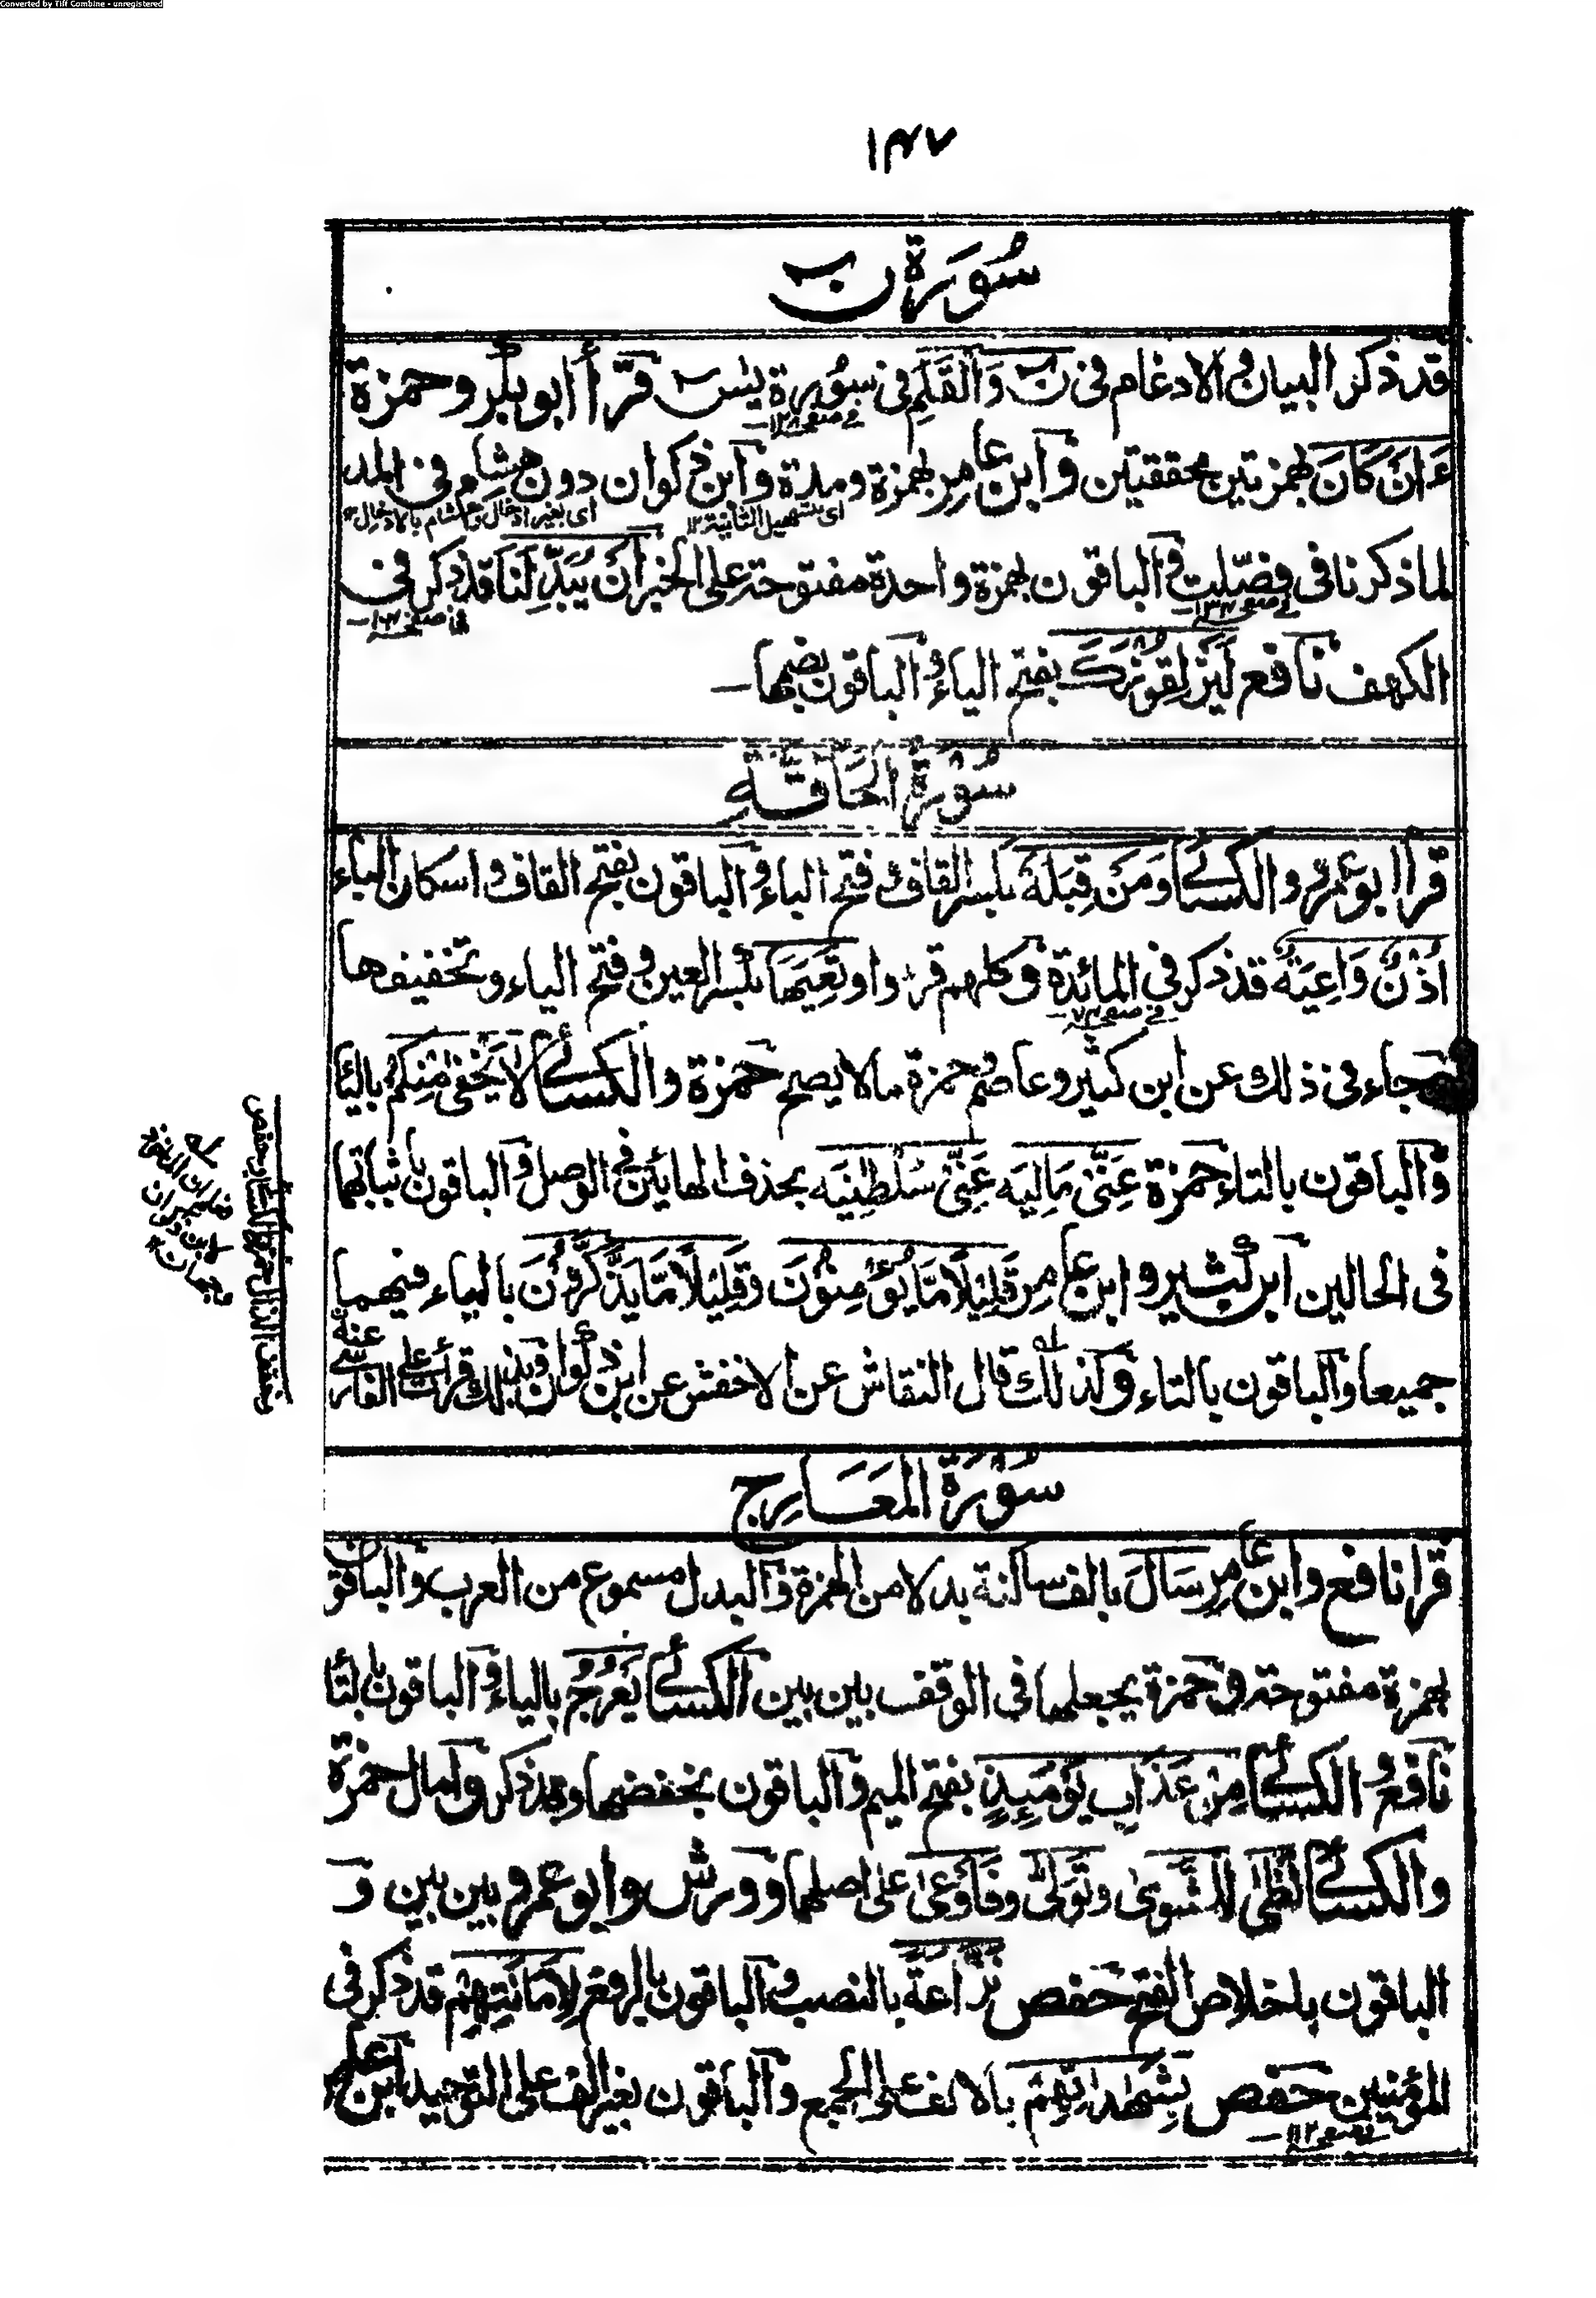 Converted by Tiff Combine - unregistered
١٤٧
سُوْرَة نٓ
قد ذكر البيان والادغام فى نٓ وَالْقَلَمِ فى سورة يٰسٓ قرأ أبو بكر وحمزة
فے صفحہ ١٢٨
ءَاَنْ كَانَ بهمزتين محققتين وابن عامر بهمزة ومدة وابن ذكوان دون هشام فى المد
اى بتسهيل الثانية ١٢ اى بغير ادخال وهشام بالادخال
لما ذكرنا فى فصّلت والباقون بهمزة واحدة مفتوحة على الخبر اَنْ يُبْدِلَنَا قد ذكر فى
الكهف نافع لَيَزْلِقُوْنَكَ بفتح الياء والباقون بضمها
سُوْرَةُ الْحَاقَّةِ
قرأ ابو عمرو والكسائى وَمَنْ قِبَلَهٗ بكسر القاف وفتح الباء والباقون بفتح القاف واسكان الباء
اُذُنٌ وَاعِيَةٌ قد ذكر فى المائدة وكلهم قرءوا وتَعِيَهَا بكسر العين وفتح الياء وتخفيفها
جاء فى ذلك عن ابن كثير وعاصم وحمزة مالا يصح حمزة والكسائى لَا يَخْفٰى مِنْكُمْ باليا
والباقون بالتاء حمزة عَنِّىْ مَالِيَه عَنِّىْ سُلْطٰنِيَه بحذف الهائين فى الوصل والباقون باثباتها
فى الحالين ابن كثير وابن عامر قَلِيْلًا مَّا يُؤْمِنُوْنَ وقَلِيْلًا مَّا يَذَّكَّرُوْنَ بالياء فيهما
جميعا والباقون بالتاء وكذلك قال النقاش عن الاخفش عن ابن ذكوان وبذلك قرأت على الفارسى عنه
سُوْرَةُ الْمَعَارِج
قرأ نافع وابن عامر سَالَ بالف ساكنة بدلا من الهمزة والبدل مسموع من العرب والباقون
بهمزة مفتوحة وحمزة يجعلها فى الوقف بين بين الكسائى يَعْرُجُ بالياء والباقون بالتا
نافع والكسائى مِنْ عَذَابِ يَوْمَئِذٍ بفتح الميم والباقون بخفضها وقد ذكر وامال حمزة
والكسائى لَظٰى لِلشَّوٰى وتَوَلّٰى وفَاَوْعٰى على اصلهما وورش وابو عمرو بين بين و
الباقون باخلاص الفتح حفص نَزَّاعَةً بالنصب والباقون بالرفع لِاَمَانَتِهِمْ قد ذكر فى
المؤمنين حفص بِشَهٰدٰتِهِمْ بالالف على الجمع والباقون بغير الف على التوحيد ابن عامر
فے صفحہ ١١٢